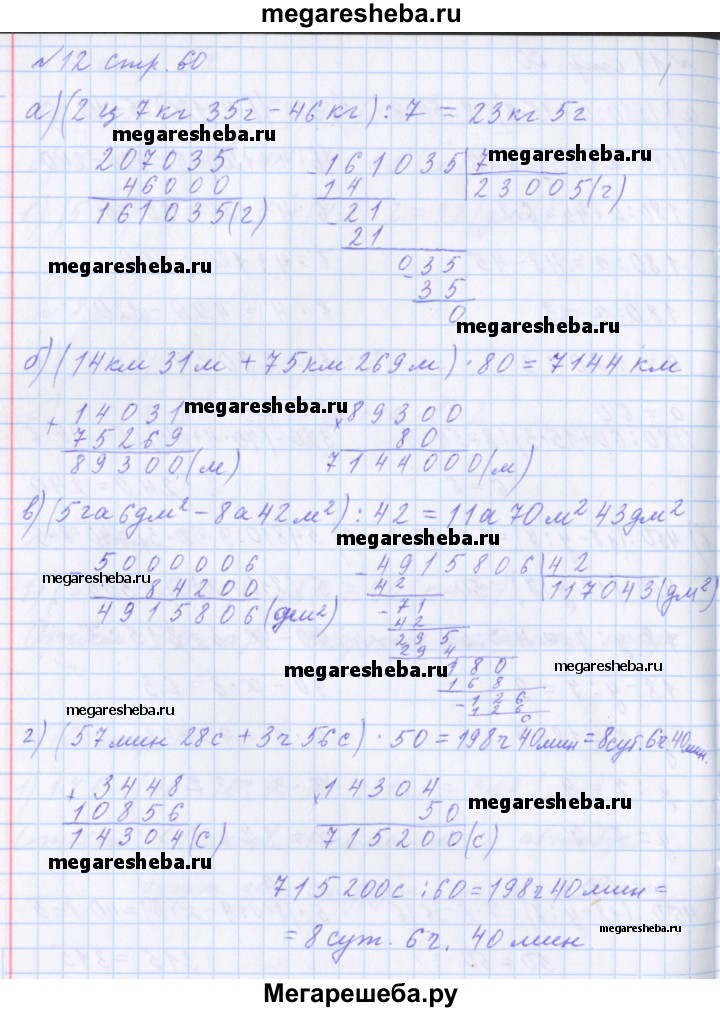 megaresheba.ru
№12 стр. 60
а) (2 ц 7 кг 35 г - 46 кг) : 7 = 23 кг 5 г
megaresheba.ru
207035
46000
161035 (г)
- 161035 | 7
14
23005 (г)
- 21
21
035
- 35
0
megaresheba.ru
megaresheba.ru
megaresheba.ru
б) (14 км 31 м + 75 км 269 м) · 80 = 7144 км
+ 14031
75269
89300 (м)
megaresheba.ru
× 89300
80
7144000 (м)
в) (5 га 6 дм² - 8 а 42 м²) : 42 = 11 а 70 м² 43 дм²
megaresheba.ru
- 5000006
84200
4915806 (дм²)
megaresheba.ru
- 4915806 | 42
42
117043 (дм²)
- 71
42
295
294
180
168
- 126
126
0
megaresheba.ru
megaresheba.ru
megaresheba.ru
г) (57 мин 28 с + 3 ч 56 с) · 50 = 198 ч 40 мин = 8 сут. 6 ч 40 мин.
+ 3448
10856
14304 (с)
× 14304
50
715200 (с)
megaresheba.ru
megaresheba.ru
715200 с : 60 = 198 ч 40 мин =
= 8 сут. 6 ч. 40 мин
megaresheba.ru
Мегарешеба.ру